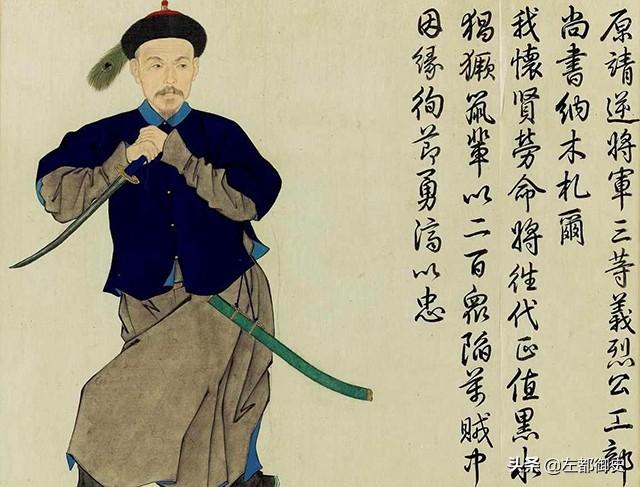 原靖逆將軍三等義烈公工部
尚書納木札爾
我懷賢勞命將往代正值黑水
猖獗鼠輩以二百眾陷萬賊中
因緣徇節勇濟以忠
头条 @左都御史